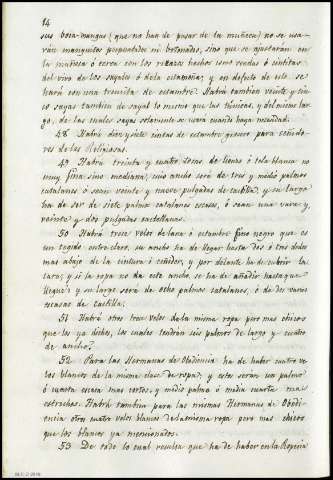 14
sus boca-mangas (que no han de pasar de la muñeca) no se usa-
rán manguitos pespuntados ni botonados, sino que se ajustarán en
la muñeca ó cerca con los retazos hechos como vendas ó cintitas
del vivo de los sayales ó de la estameña; y en defecto de esto se
hará con una trencita de estambre. Habrá tambien veinte y cin-
co sayas tambien de sayal lo mismo que las túnicas, y del mismo lar-
go, de las cuales sayas solamente se usará cuando haya necesidad.
48 Habrá diez y siete cintas de estambre grosero para ceñido-
res de las Religiosas.
49 Habrá treinta y cuatro tocas de lienzo ó tela blanca no
muy fina sino mediana, cuio ancho será de tres y medio palmos
catalanes ó sean veinte y nueve pulgadas de castilla, y su largo
ha de ser de siete palmos catalanes escasos, ó sean una vara y,
veinte y dos pulgadas castellanas.
50 Habrá trece velos de laca ó estambre fino negro que es
un tegido entre claro, su ancho ha de llegar hasta dos ó tres dedos
mas abajo de la cintura ó ceñidor, y por delante ha de cubrir la
cara; y si la ropa no da este ancho, se ha de añadir hasta que
llegue: y su largo será de ocho palmos catalanes, ó de dos varas
escasas de Castilla.
51 Habrá otros trece velos de la misma ropa pero mas chicos
que los ya dichos, los cuales tendrán seis palmos de largo y cuatro
de ancho.
52 Para las Hermanas de Obediencia ha de haber cuatro ve-
los blancos de la misma clase de ropa; y estos serán un palmo
ó cuarta escasa mas cortos, y medio palmo ó media cuarta mas
estrechos. Habrá tambien para las mismas Hermanas de Obedi-
encia otros cuatro velos blancos de la misma ropa pero mas chicos
que los blancos ya mencionados.
53 De todo lo cual resulta que ha de haber en la Roperia